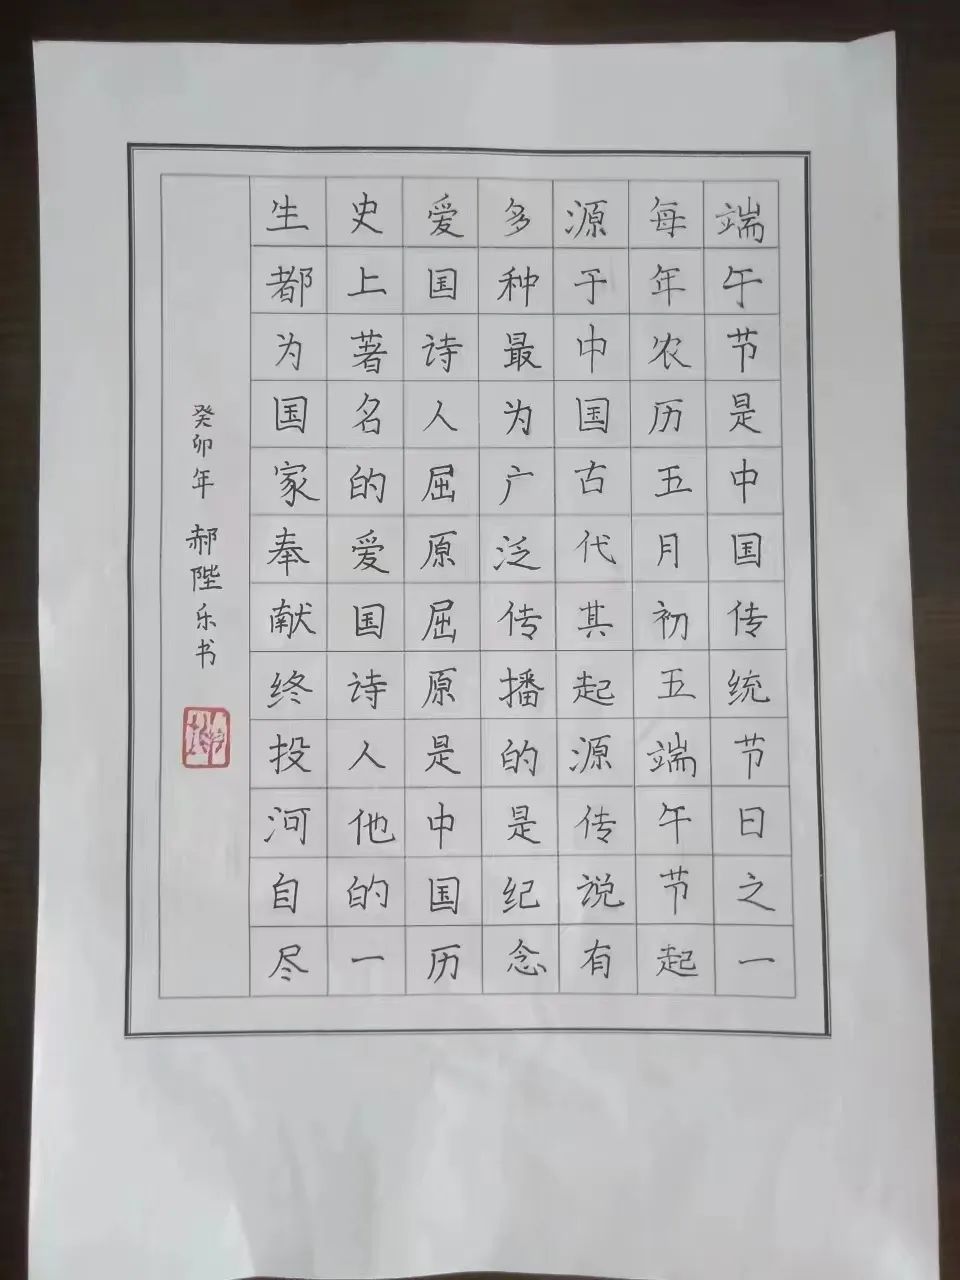 端午节是中国传统节日之一
每年农历五月初五端午节起
源于中国古代其起源传说有
多种最为广泛传播的是纪念
爱国诗人屈原屈原是中国历
史上著名的爱国诗人他的一
生都为国家奉献终投河自尽
癸卯年 郝陛乐书